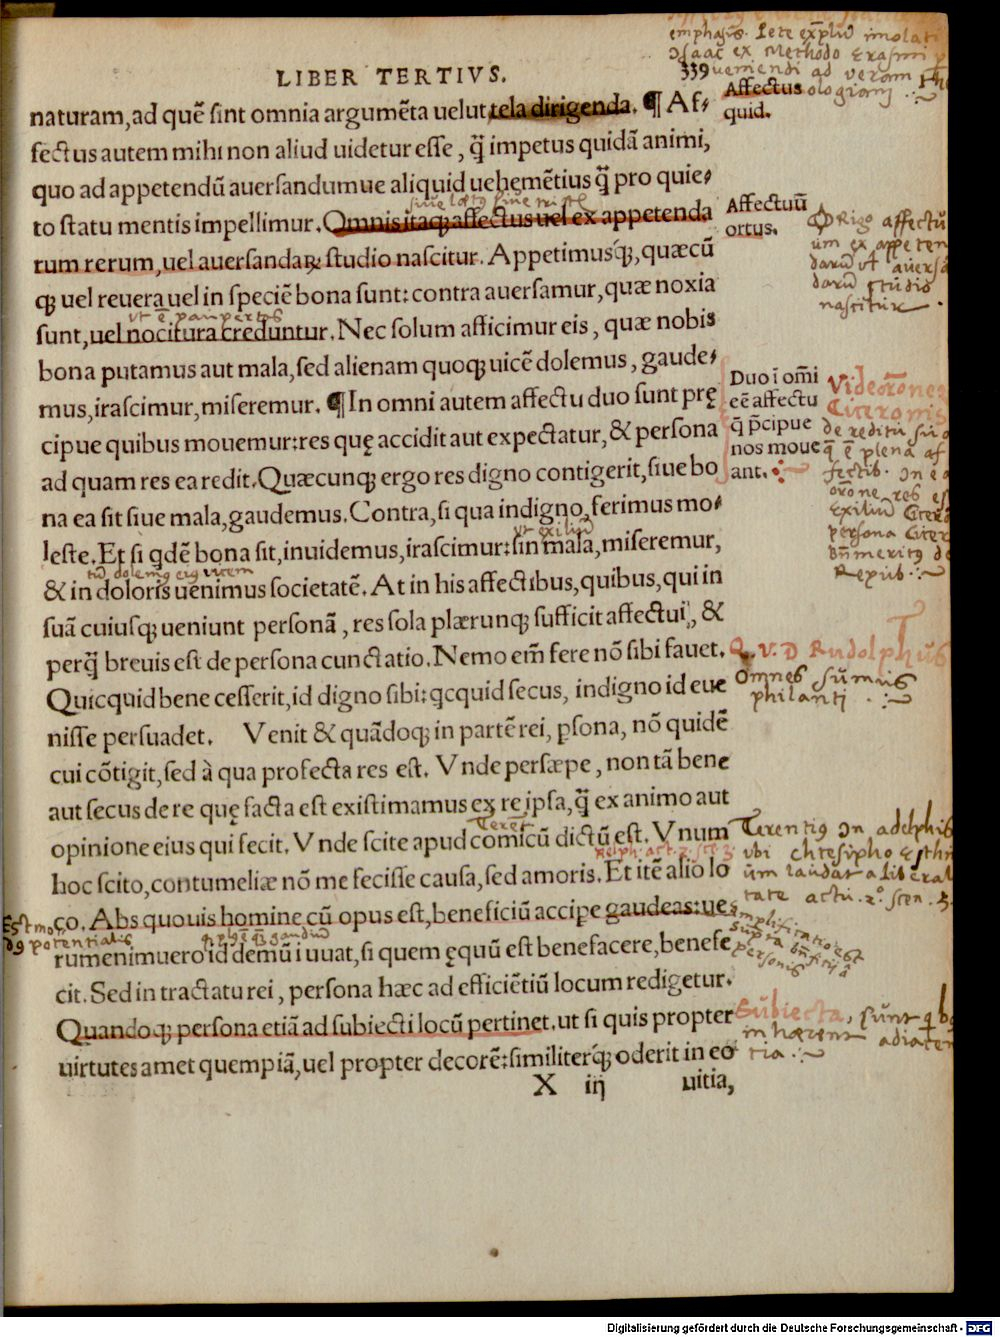 LIBER TERTIVS.
339
naturam, ad quē sint omnia argumēta uelut tela dirigenda. ¶ Af-
fectus autem mihi non aliud uidetur esse, q̄̃ impetus quidā animi,
quo ad appetendū auersandumue aliquid uehemētius q̄̃ pro quie-
to statu mentis impellimur. Omnis itaqꝫ affectus uel ex appetenda
rum rerum, uel auersandaꝝ studio nascitur. Appetimusq́ꝫ, quæcū
qꝫ uel reuera uel in speciē bona sunt: contra auersamur, quæ noxia
sunt, uel nocitura creduntur. Nec solum afficimur eis, quæ nobis
bona putamus aut mala, sed alienam quoqꝫ uicē dolemus, gaude-
mus, irascimur, miseremur. ¶ In omni autem affectu duo sunt prę
cipue quibus mouemur: res quę accidit aut expectatur, & persona
ad quam res ea redit. Quæcunqꝫ ergo res digno contigerit, siue bo
na ea sit siue mala, gaudemus. Contra, si qua indigno, ferimus mo-
leste. Et si qdē bona sit, inuidemus, irascimur: sin mala, miseremur,
& in doloris uenimus societatē. At in his affectibus, quibus, qui in
suā cuiusqꝫ ueniunt personā, res sola plærunqꝫ sufficit affectui, &
perq̄̃ breuis est de persona cunctatio. Nemo em̄ fere nō sibi fauet.
Quicquid bene cesserit, id digno sibi: qcquid secus, indigno id eue
nisse persuadet. Venit & quādoqꝫ in partē rei, ꝑsona, nō quidē
cui cōtigit, sed à qua profecta res est. Vnde persæpe, non tā bene
aut secus de re quę facta est existimamus ex re ipsa, q̄̃ ex animo aut
opinione eius qui fecit. Vnde scite apud comicū dictū est. Vnum
hoc scito, contumeliæ nō me fecisse causa, sed amoris. Et itē alio lo
co. Abs quouis homine cū opus est, beneficiū accipe gaudeas: ue
rumenimuero id demū iuuat, si quem ęquū est benefacere, benefe
cit. Sed in tractatu rei, persona hæc ad efficiētiū locum redigetur.
Quandoqꝫ persona etiā ad subiecti locū pertinet. ut si quis propter
uirtutes amet quempiā, uel propter decorē: similiterq́ꝫ oderit in eo
X iij uitia,
Affectus
quid.
Affectuū
ortus.
Duo ī om̄i
eē affectu
q̄ p̄cipue
nos moue
ant.
Origo affectu
um ex appeten
darū vt auersa
darū studio
nascitur
Ciceronis
de reditu suo
persona Cicero
Rudolphus
Omnes sumus
philauti
Terentiꝰ In adelphis
vbi
um laudat a liberal
tate actu. 2. scen. 5.
Subiecta, sunt
inhærent
tia
Digitalisierung gefördert durch die Deutsche Forschungsgemeinschaft - DFG